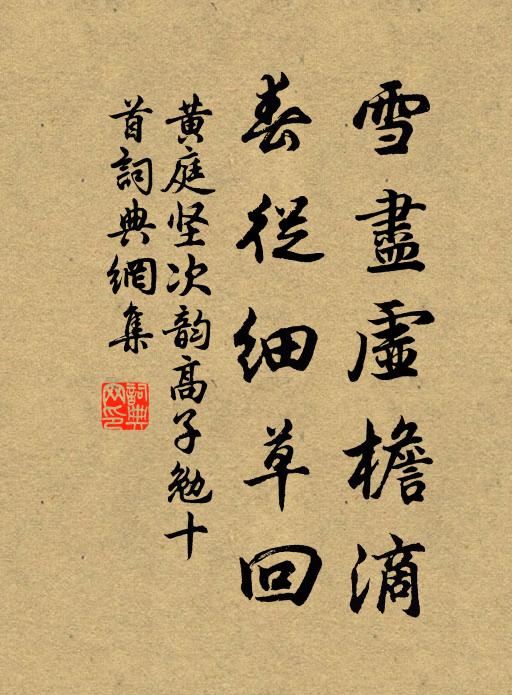 雪盡虛檐滴
春從細草回
黄庭坚次韵高子勉十
首詞典網集
詞典網印